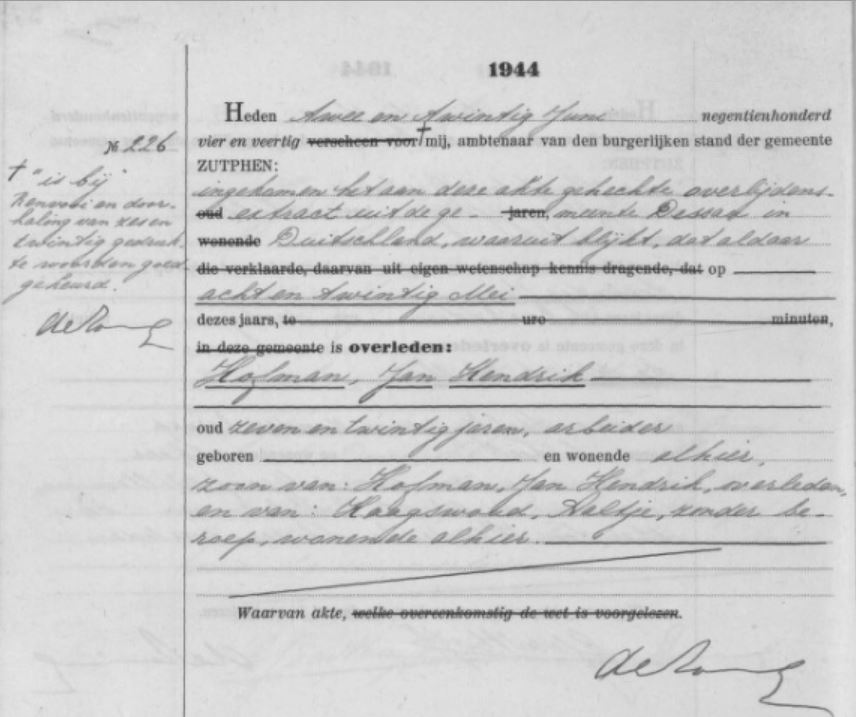 1944
Heden twee en twintig Juni negentienhonderd
vier en veertig verscheen voor † mij, ambtenaar van den burgerlijken stand der gemeente
ZUTPHEN:
№ 226
† "is bij"
Renvooi en door-
haling van zes en
twintig gedruk-
te woorden goed
gekeurd.
ingekomen het aan deze akte gehechte overlijdens-
oud extract uit de ge- jaren, meente Dessau in
wonende Duitschland, waaruit blijkt, dat aldaar
die verklaarde, daarvan uit eigen wetenschap kennis dragende, dat op
acht en twintig Mei
dezes jaars, te ure minuten,
in deze gemeente is overleden:
Hofman, Jan Hendrik
oud zeven en twintig jaren, arbeider
geboren en wonende alhier,
zoon van: Hofman, Jan Hendrik, overleden,
en van: Haagswoud, Aaltje, zonder be-
roep, wonende alhier.
Waarvan akte, welke overeenkomstig de wet is voorgelezen.